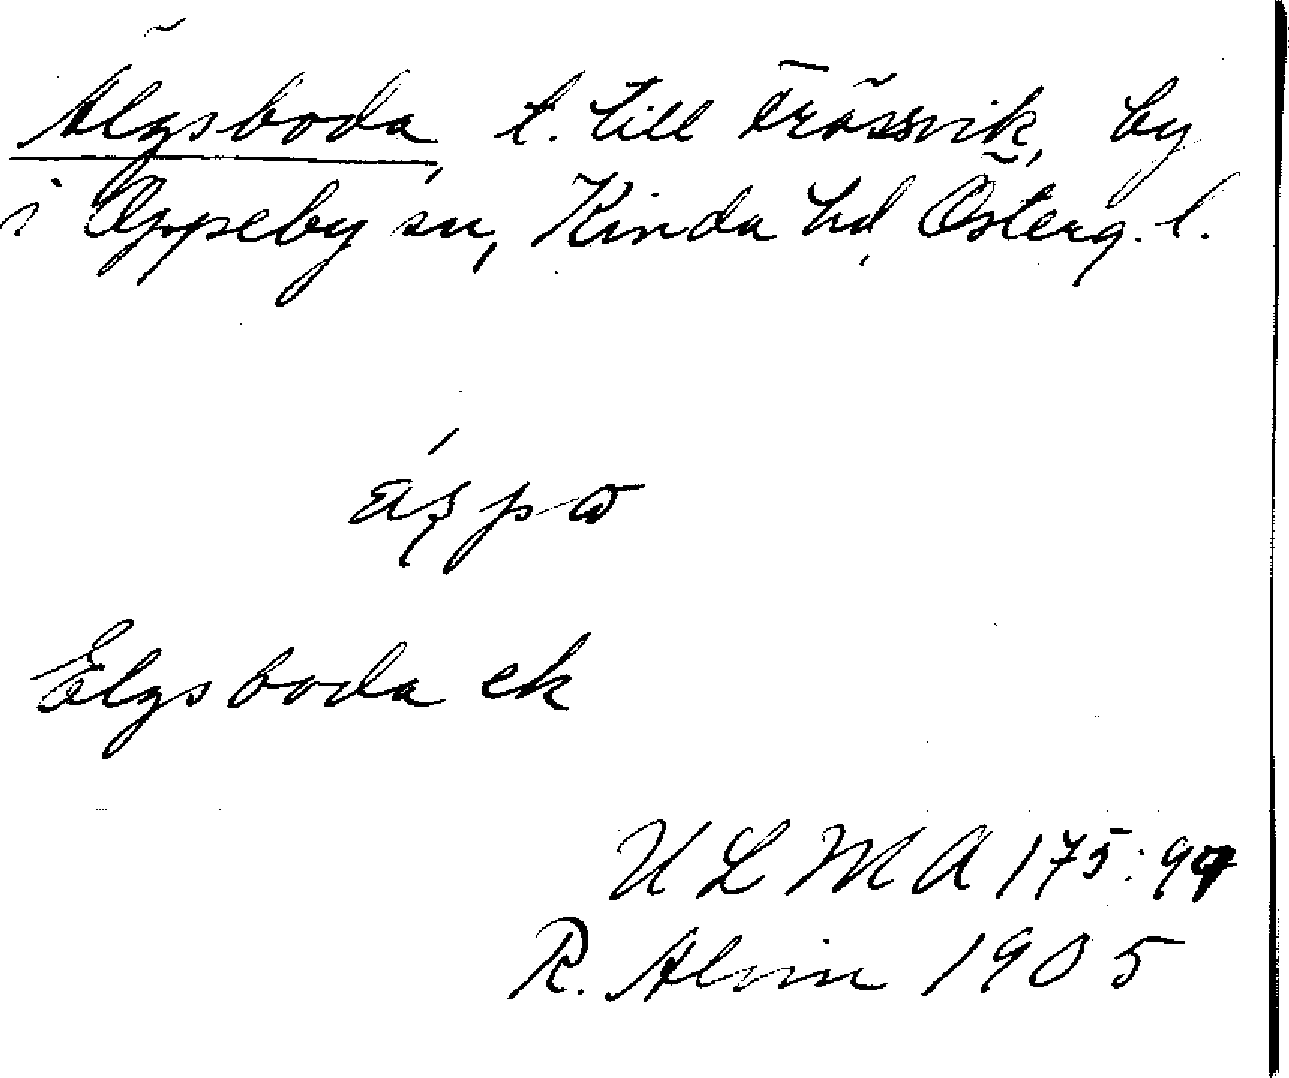 Älgsboda, t. till Trässvik, by
i Oppeby sn, Kinda hd, Österg. l.
Elgsboda ek
ULMA 175:97
R. Alvin 1905